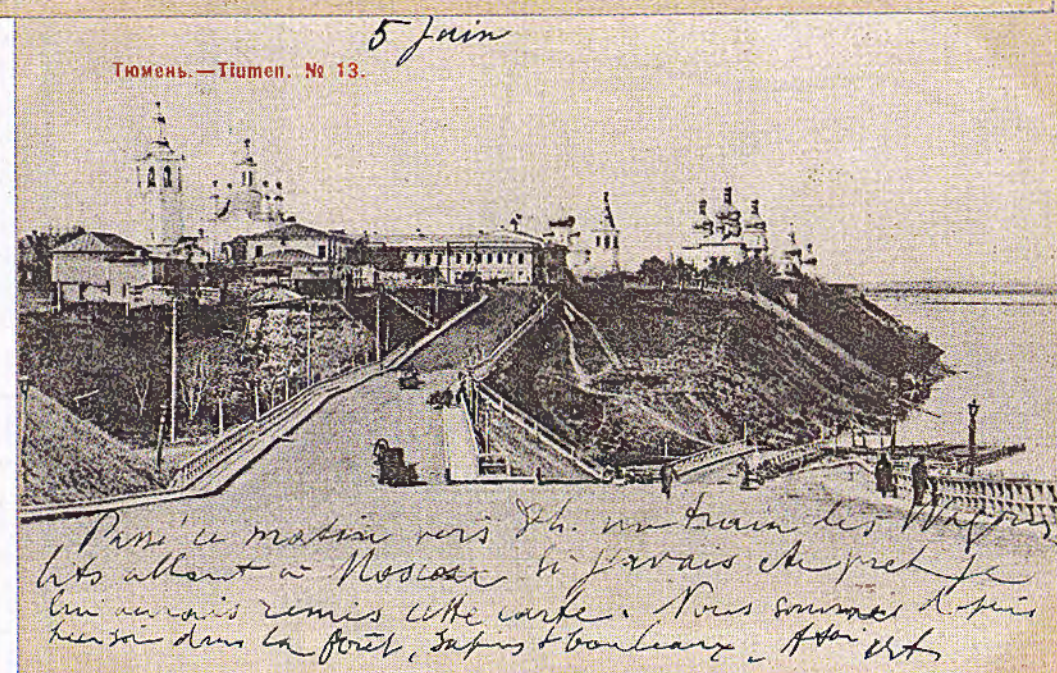 5 Juin
Тюмень.—Tiumen. № 13.
Passé ce matin vers 8h. un train des Wagons
lits allant à Moscou si j'avais été prêt je
lui aurais remis cette carte. Nous sommes depuis
hier soir dans la forêt, sapins & bouleaux.